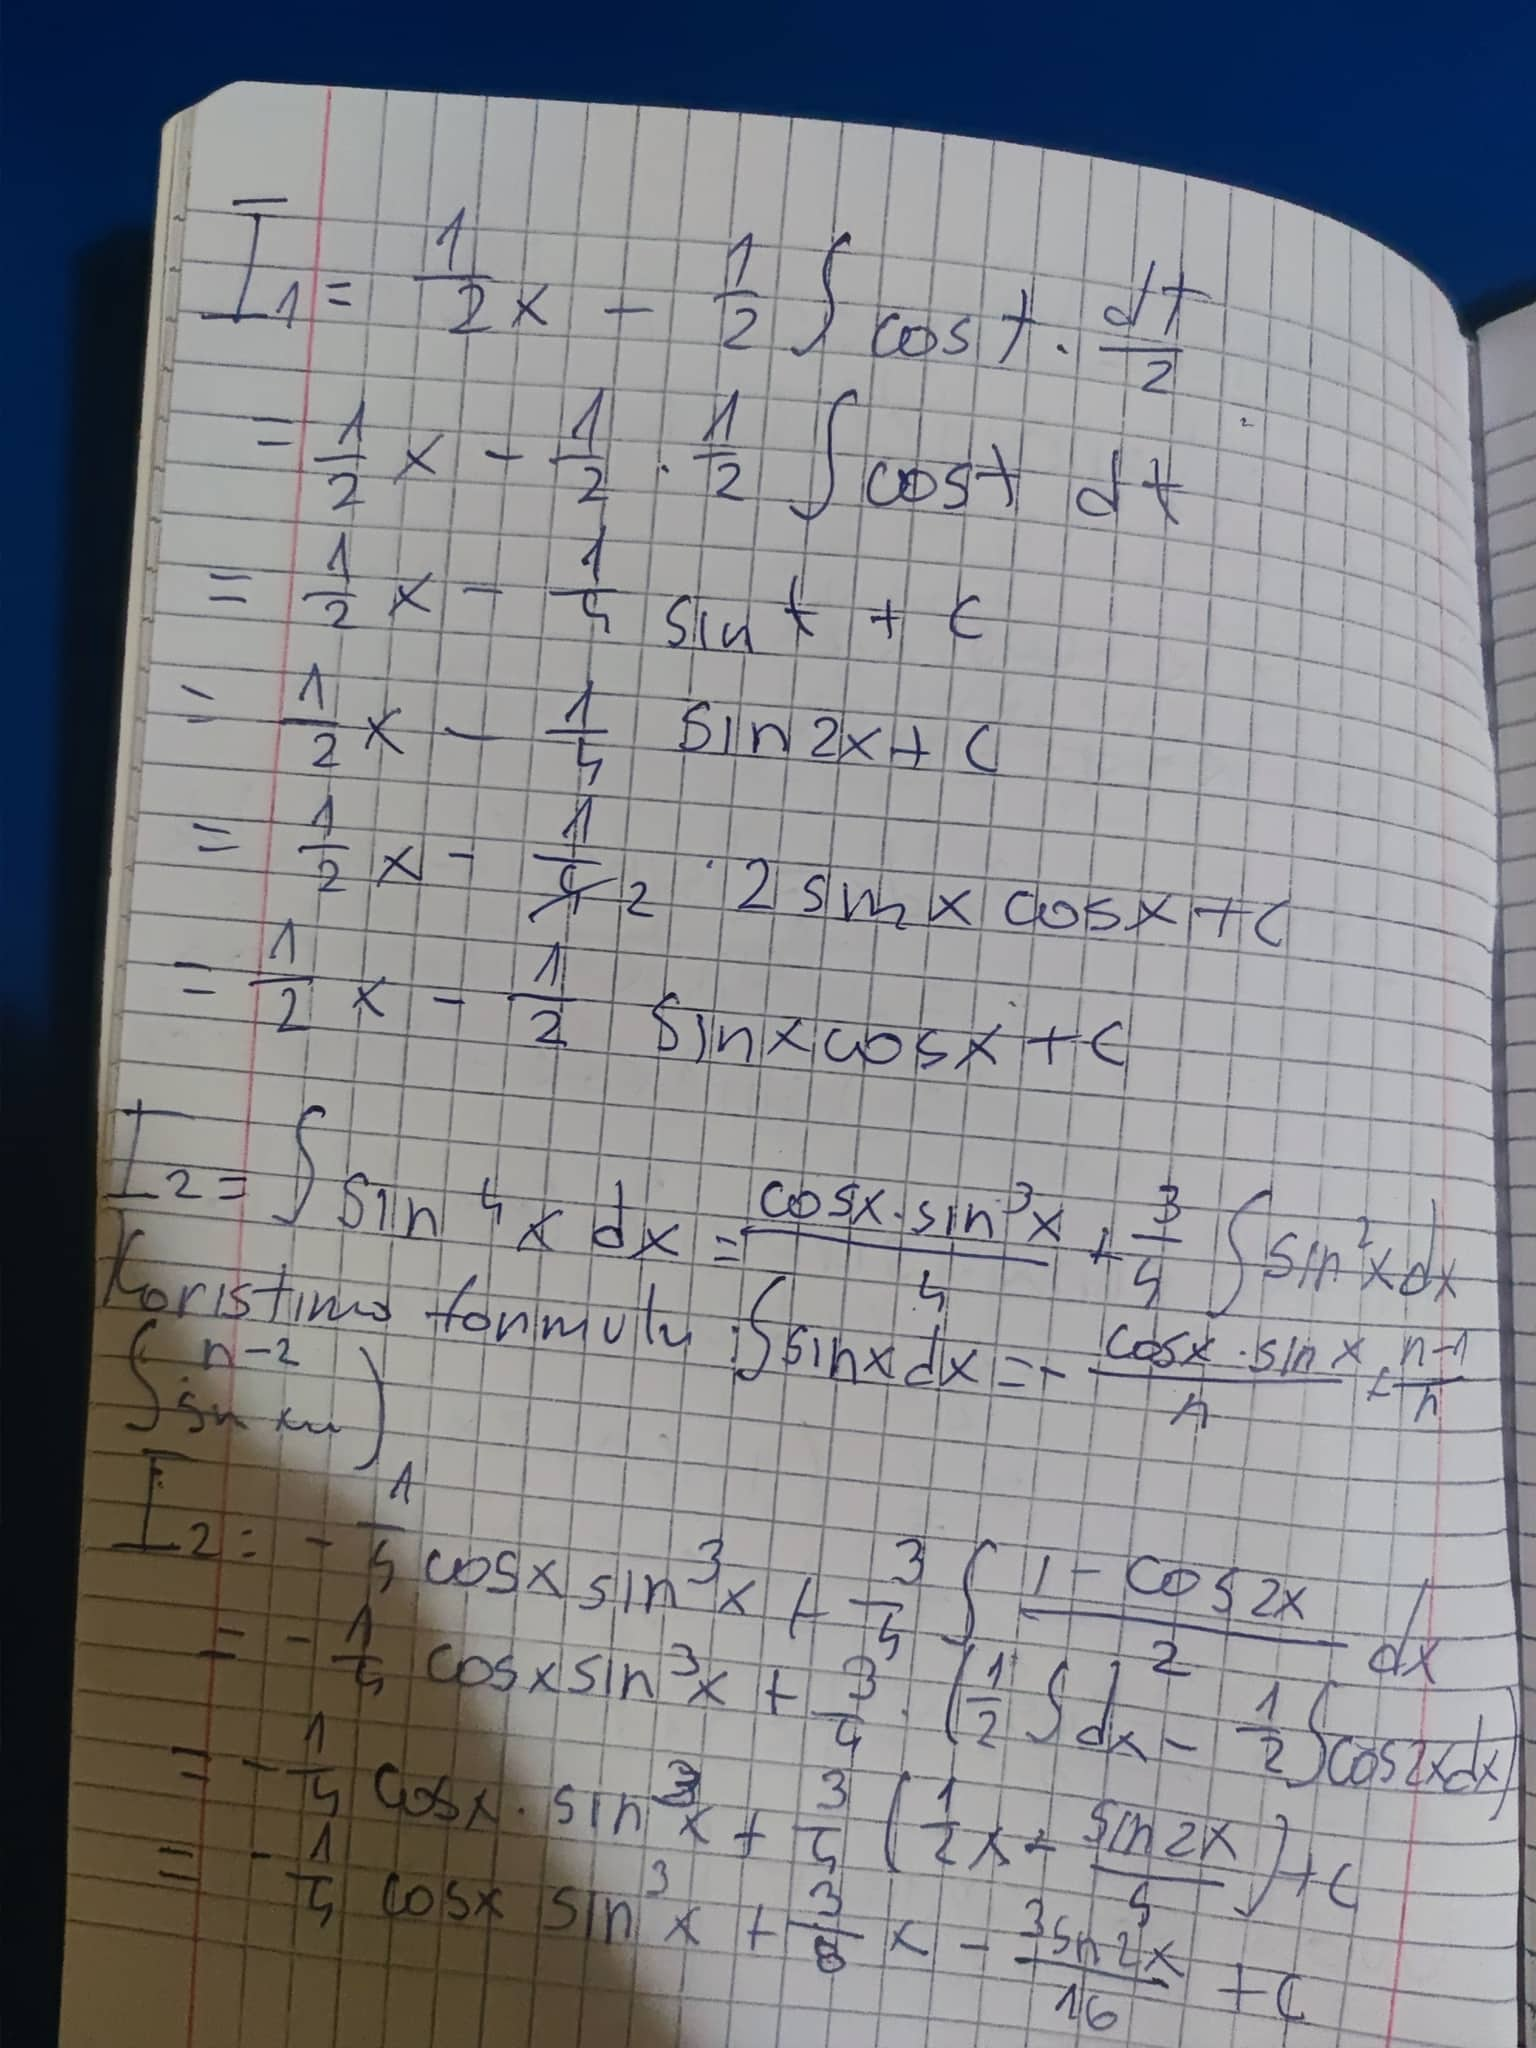 I₁ = 1/2 x - 1/2 ∫ cos t · dt/2
= 1/2 x - 1/2 · 1/2 ∫ cos t dt
= 1/2 x - 1/4 sin t + C
= 1/2 x - 1/4 sin 2x + C
= 1/2 x - 1/4 2 · 2 sin x cos x + C
= 1/2 x - 1/2 sin x cos x + C
I₂ = ∫ sin⁴ x dx = cos x · sin³ x / 4 + 3/4 ∫ sin² x dx
Koristimo formulu : ∫ sin x dx = - cos x · sin x / n + n-1 / n
∫ sin n-2 x )
I₂ = - 1/4 cos x sin³ x + 3/4 ∫ 1 - cos 2x / 2 dx
= - 1/4 cos x sin³ x + 3/4 · (1/2 ∫ dx - 1/2 ∫ cos 2x dx)
= - 1/4 cos x · sin³ x + 3/4 (1/2 x - sin 2x / 4) + C
= - 1/4 cos x sin³ x + 3/8 x - 3 sin 2x / 16 + C